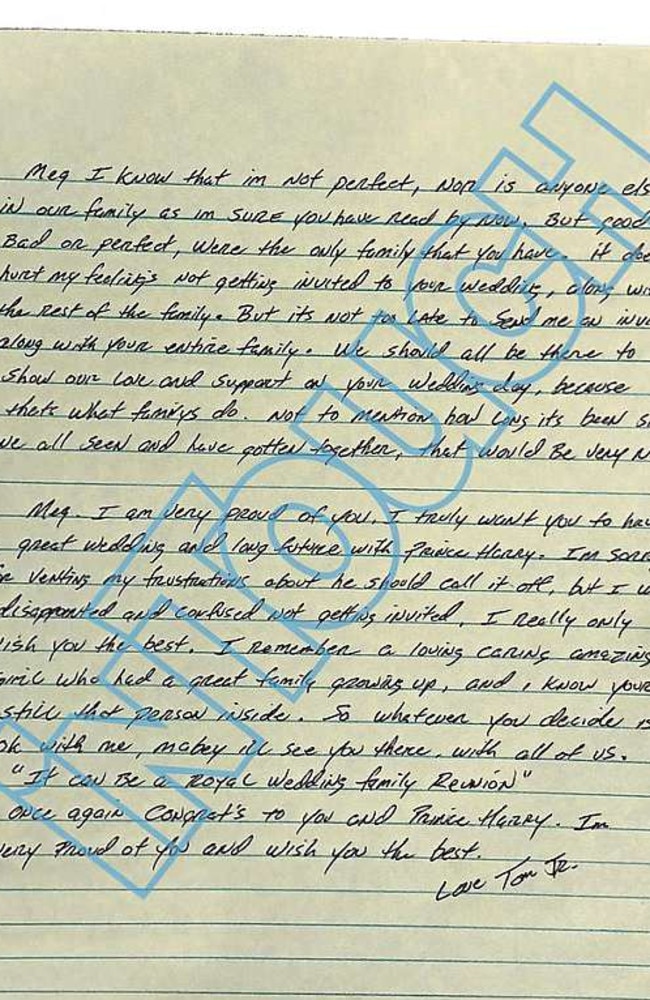 Meg I know that im not perfect, Nor is anyone els
in our family as im SURE you have read by Now. But good
Bad or perfect, were the only family that you have. it doe
hurt my feeling's not getting invited to your wedding, along wi
the rest of the family. But its not too LAte to Send me an inv
along with your entire family. We should all be there to
show our Love and support on your Wedding day, because
thats what familys do. Not to mention how Long its been s
we all seen and have gotten together, that would Be very N
Meg. I am very proud of you, I truly want you to hav
great wedding and long future with Prince Harry. I'm sorr
for venting my frustrations about he should call it off, but I w
disappointed and confused not getting invited. I really only
wish you the best. I remember a loving caring amazing
girl who had a great family growing up, and i know your
still that person inside. So whatever you decide is
ok with me, mabey ill see you there, with all of us.
"It can Be a Royal Wedding family Reunion"
once again Congrat's to you and Prince Harry. Im
very Proud of you and wish you the best.
Love Tom Jr.
INTOUCH